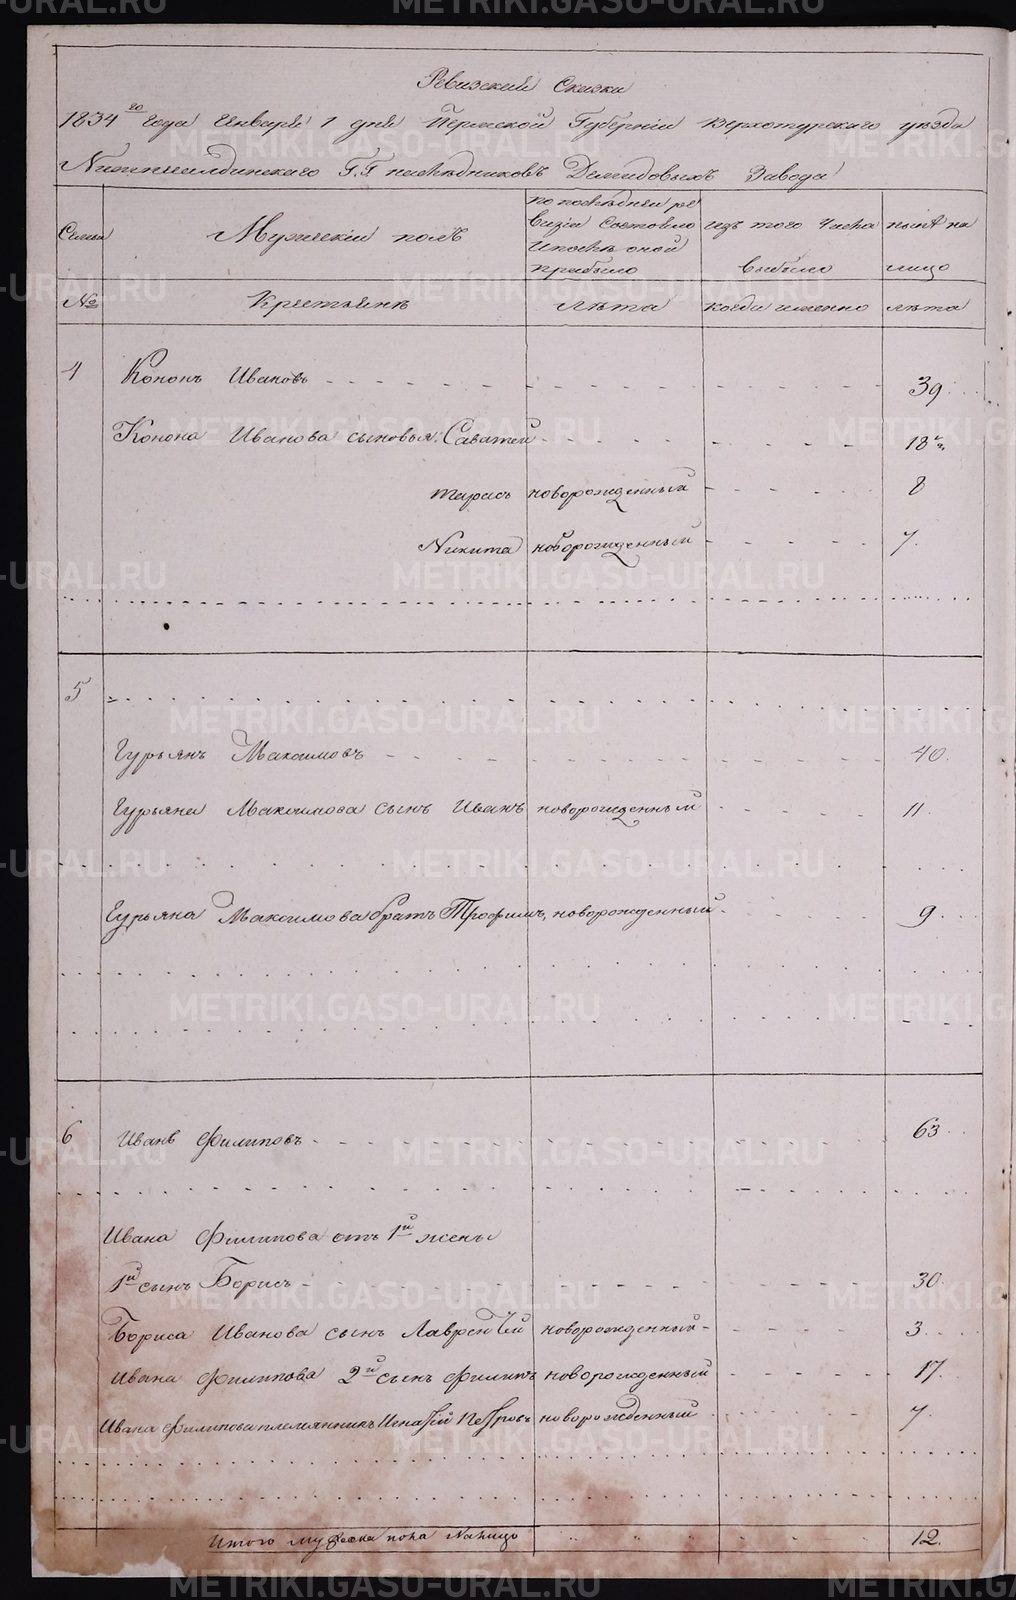 Ревизской Сказки
1834го года Января 1 дня Пермской Губерніи Верхотурскаго уѣзда
Нижнесалдинскаго Г.Г наслѣдниковъ Демидовыхъ Завода
Семьи
Мужескій полъ
по послѣдней ре
визіи Состояло
и послѣ оной
прибыло
изъ того числа
выбыло
нынѣ на
лицо
№
Крестьянѣ
лѣта
когда именно
лѣта
4 Кононъ Ивановъ 39
Конона Иванова сыновья: Саватей 18
тарасъ новорожденный 8
Никита новорожденный 7.
5
Гурьянъ Максимовъ 40.
Гурьяна Максимова сынъ Иванъ новорожденный 11.
Гурьяна Максимова братъ Трофимъ, новорожденный 9
6 Иванъ Филиповъ 63
Ивана Филипова отъ 1й жены
1й сынъ Борисъ 30.
Бориса Иванова сынъ Лаврентій новорожденный 3
Ивана Филипова 2й сынъ Филипъ новорожденный 17.
Ивана Филипова племянникъ Игнатій Петровъ новорожденный 7.
Итого мужеска пола На лицо 12.
METRIKI.GASO-URAL.RU